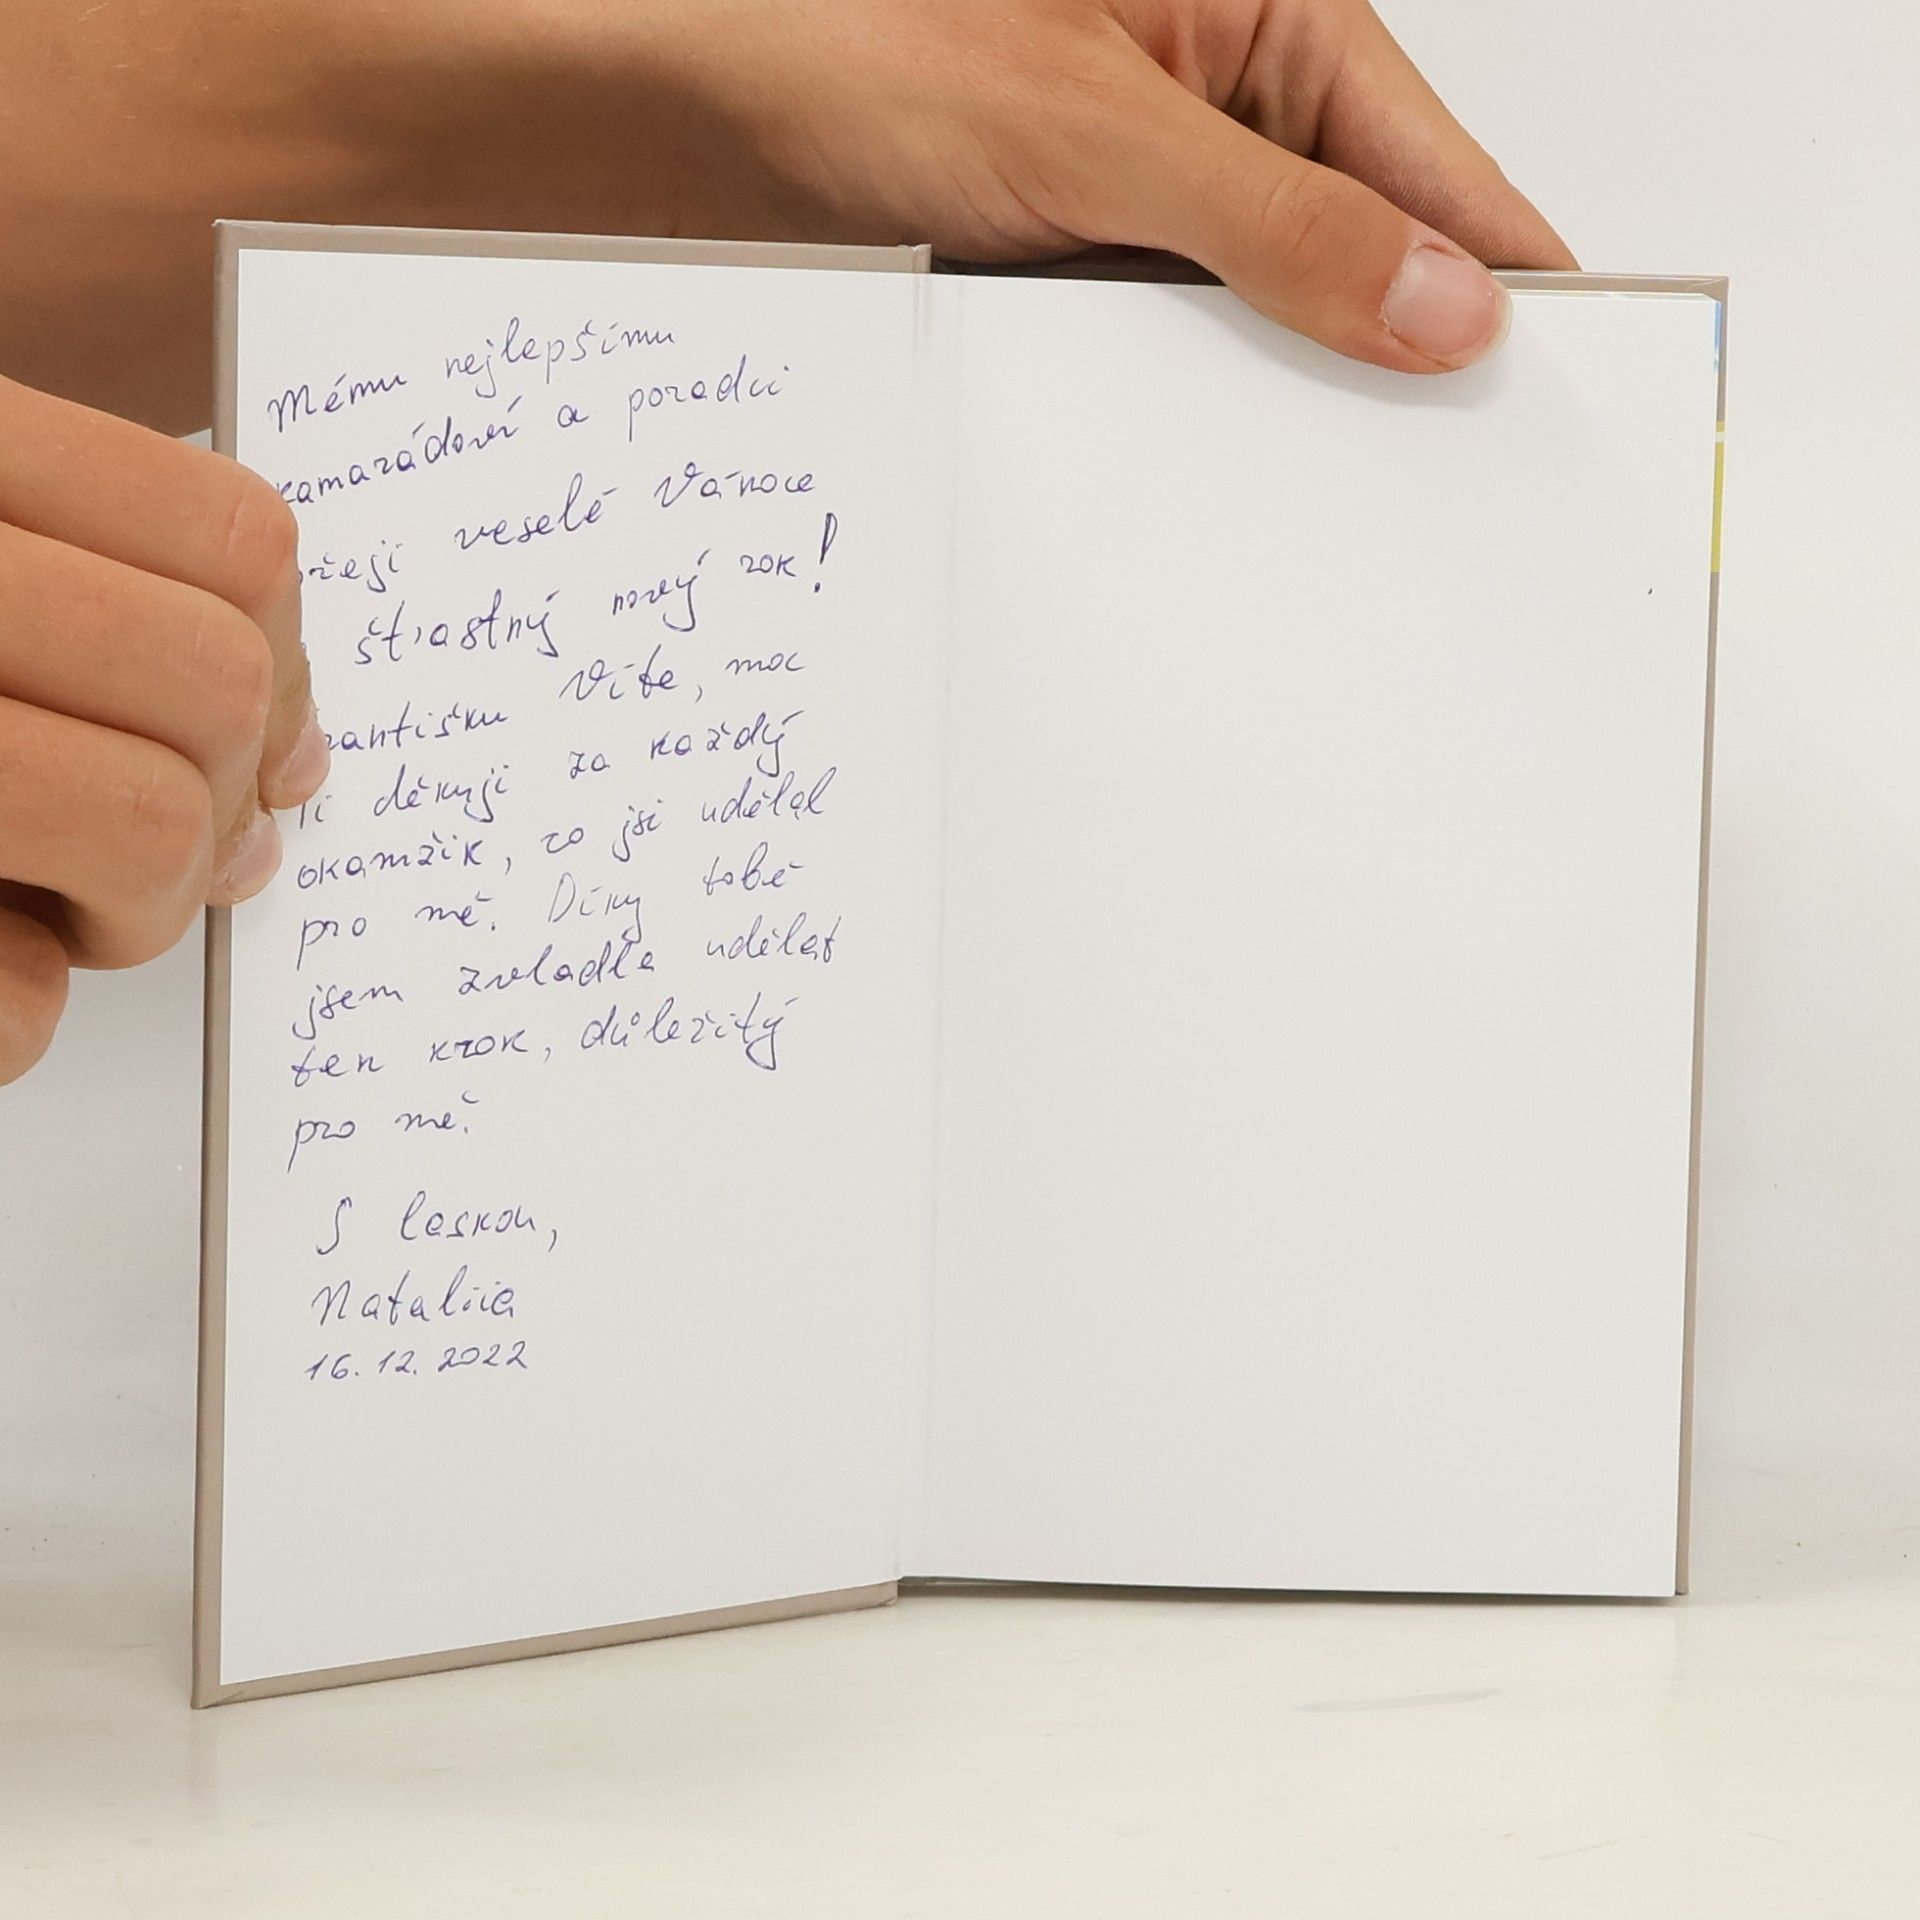 Mému nejlepšímu
kamarádovi a poradci
přeji veselé Vánoce
štiastný nový rok!
Františku Víte, moc
Ti děkuji za každý
okamžik, co jsi udělal
pro mě. Díky tobě
jsem zvladla udělat
ten krok, důležitý
pro mě.
S laskou,
Nataliia
16.12.2022